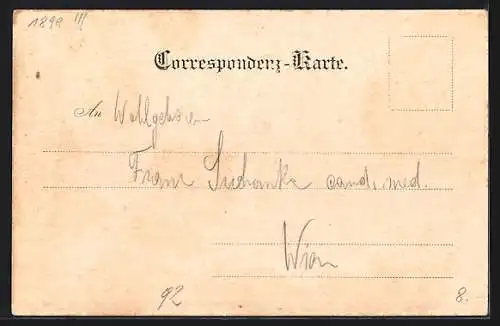 189
Correspondenz-Karte.
An Wohlgeboren
Franz cand. med.
Wien
92 8.